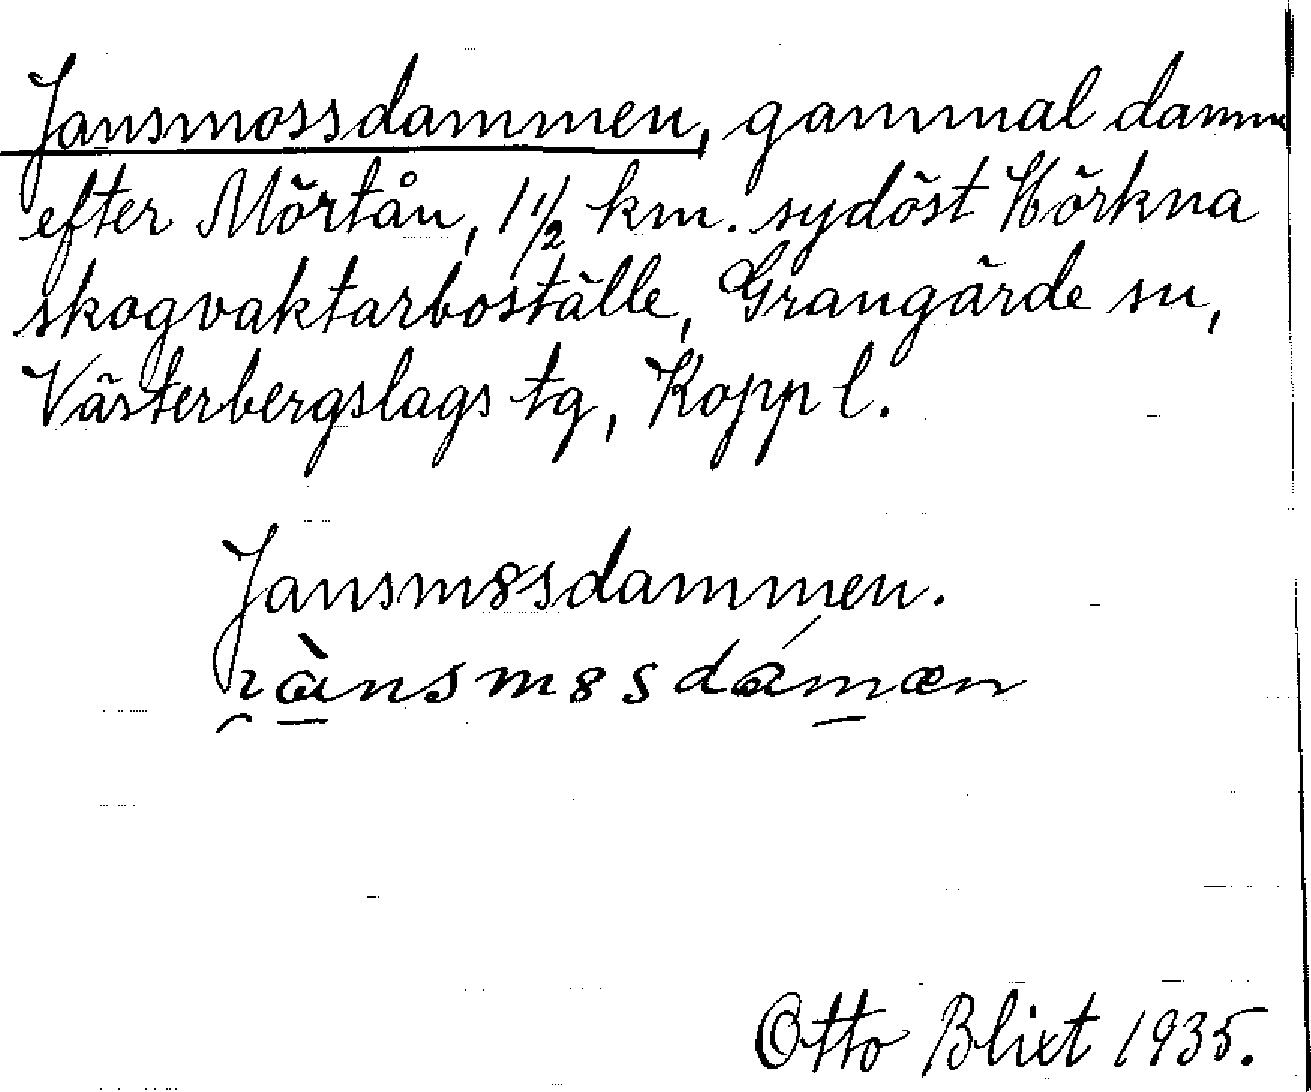 Jansmossdammen, gammal damm
efter Mörtån, 1 1/2 km. sydöst Hörkna
skogvaktarboställe, Grangärde sn,
Västerbergslags tg, Kopp l.
Jansm8sdammen.
Otto Blixt 1935.